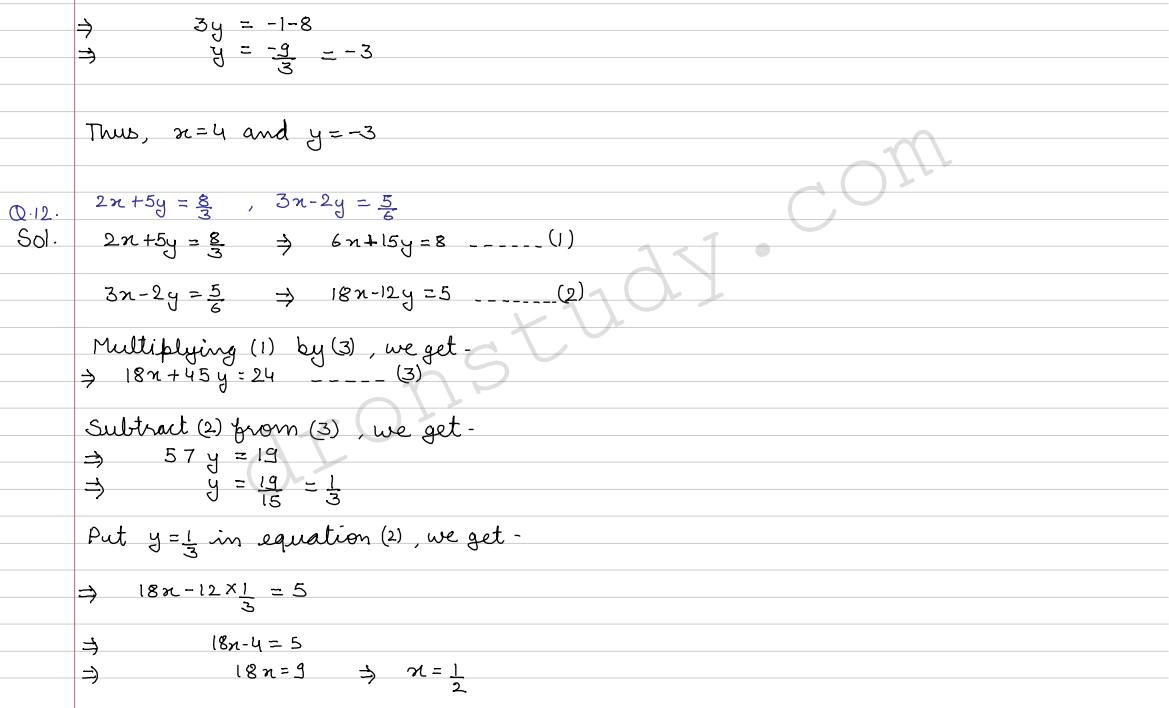 ⇒ 3y = -1-8
⇒ y = -9/3 = -3
Thus, x=4 and y=-3
Q.12. 2x+5y = 8/3 , 3x-2y = 5/6
Sol. 2x+5y = 8/3 ⇒ 6x+15y=8 ------(1)
3x-2y = 5/6 ⇒ 18x-12y=5 --------(2)
Multiplying (1) by (3), we get-
⇒ 18x+45y=24 ----- (3)
Subtract (2) from (3), we get-
⇒ 57y = 19
⇒ y = 19/15 = 1/3
Put y=1/3 in equation (2), we get-
⇒ 18x-12×1/3 = 5
⇒ 18x-4=5
⇒ 18x=9 ⇒ x=1/2
dronstudy.com